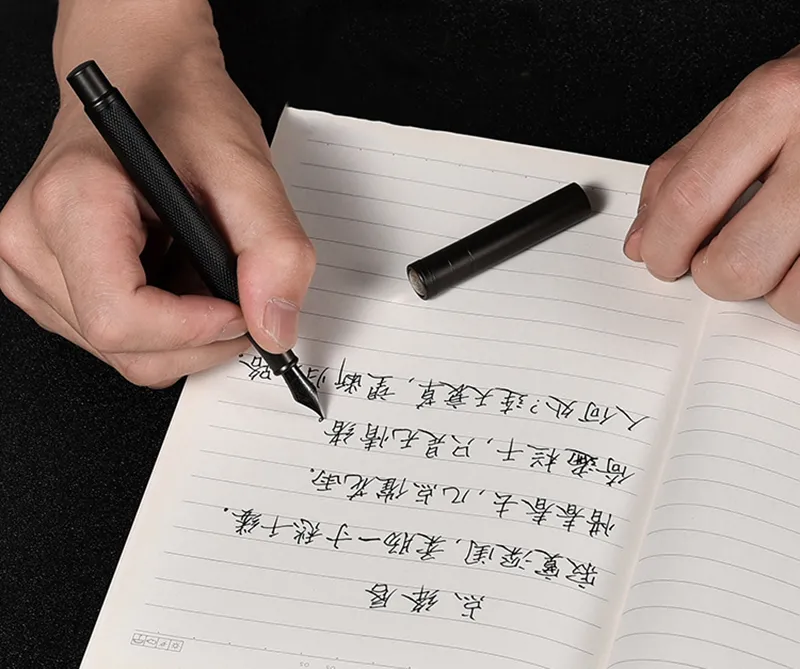 点绛唇
寂寞深闺，柔肠一寸愁千缕。
惜春春去，几点催花雨。
倚遍栏干，只是无情绪
人何处？连天衰草，望断归路．